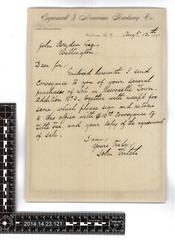 Augt 12th
John Bryden Esq.
Wellington.
Dear Sir,
Enclosed herewith I send
Conveyance to you of your several
purchases of Lots in Newcastle Town
Addition No 3, together with receipt for
same which please sign and return
to this office with Conveyance &
Title Fee, and your Copy of the agreement
of Sale.
I am,
Yours truly,
John
2014.14.23.121